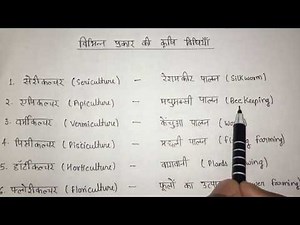 विभिन्न प्रकार की कृषि विधियाँ
1. सेरीकल्चर (Sericulture) - रेशमकीट पालन (Silkworm)
2. एपीकल्चर (Apiculture) - मधुमक्खी पालन (Beekeeping)
3. वर्मीकल्चर (Vermiculture) - केंचुआ पालन
4. पिसीकल्चर (Pisciculture) - मछली पालन farming)
5. हॉर्टीकल्चर (Horticulture) - बागवानी (Plants
6. फ्लोरीकल्चर (Floriculture) - फूलों का farming)